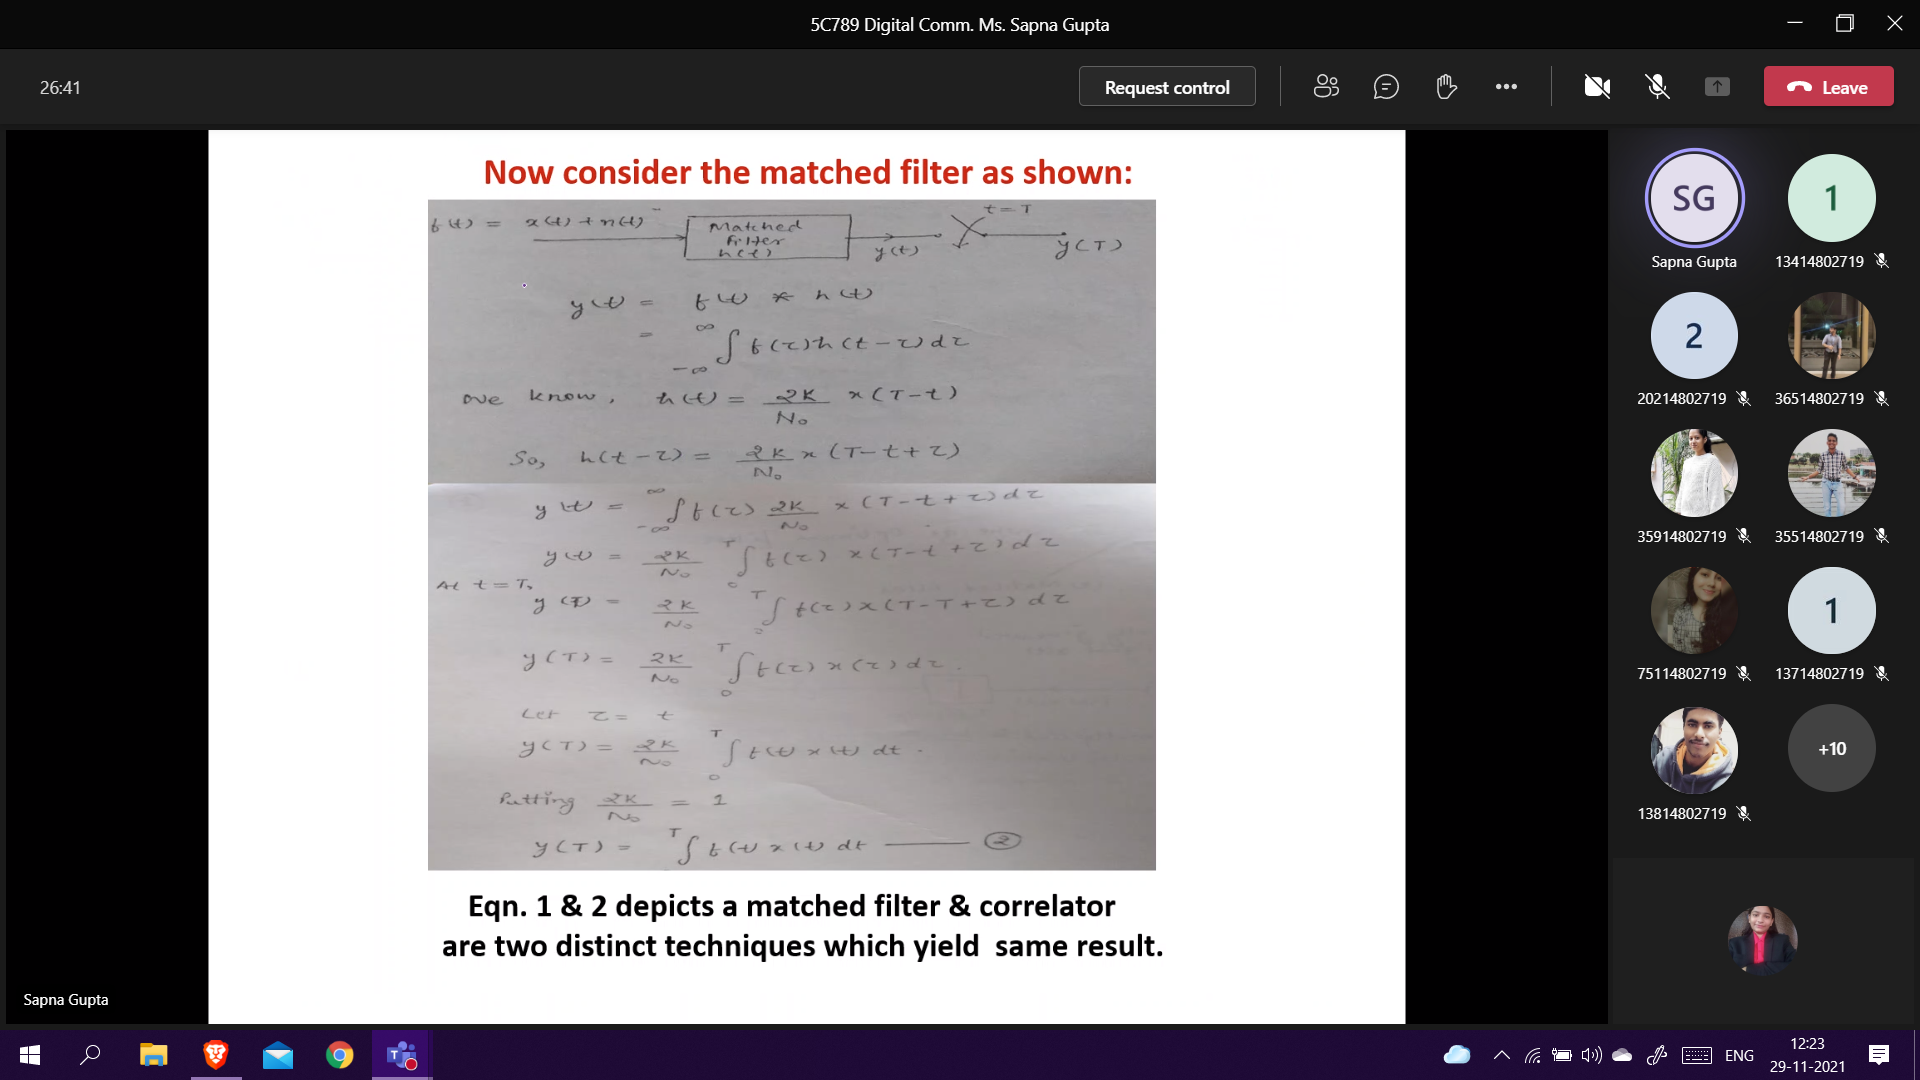 5C789 Digital Comm. Ms. Sapna Gupta
26:41
Request control
Leave
Now consider the matched filter as shown:
f(t) = x(t) + n(t)
Matched
Filter
h(t)
y(t)
t = T
y(T)
y(t) = f(t) * h(t)
= ∞∫-∞ f(τ) h(t-τ) dτ
We know, h(t) = 2K/N₀ x(T-t)
So, h(t-τ) = 2K/N₀ x(T-t+τ)
y(t) = ∞∫-∞ f(τ) 2K/N₀ x(T-t+τ) dτ
y(t) = 2K/N₀ T∫0 f(τ) x(T-t+τ) dτ
At t=T,
y(T) = 2K/N₀ T∫0 f(τ) x(T-T+τ) dτ
y(T) = 2K/N₀ T∫0 f(τ) x(τ) dτ.
Let τ = t
y(T) = 2K/N₀ T∫0 f(t) x(t) dt.
Putting 2K/N₀ = 1
y(T) = T∫ f(t) x(t) dt —— ②
Eqn. 1 & 2 depicts a matched filter & correlator
are two distinct techniques which yield same result.
Sapna Gupta
SG
Sapna Gupta
1
13414802719
2
20214802719
36514802719
35914802719
35514802719
75114802719
1
13714802719
13814802719
+10
ENG
12:23
29-11-2021